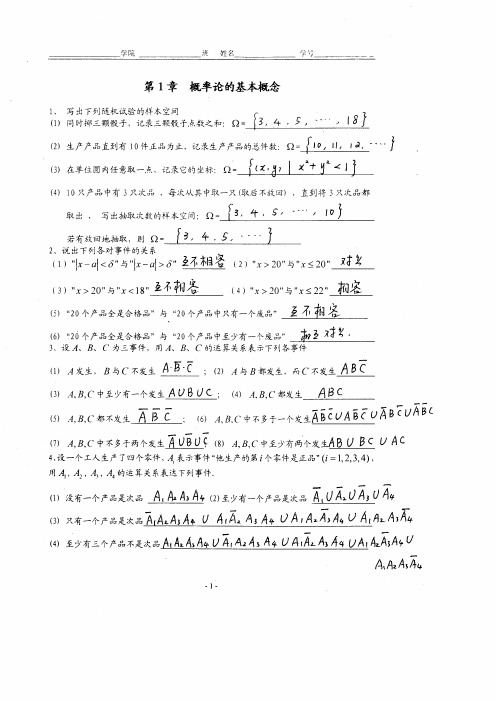 学院 班 姓名 学号
第1章 概率论的基本概念
1、 写出下列随机试验的样本空间
(1) 同时掷三颗骰子,记录三颗骰子点数之和; Ω= {3, 4, 5, ····, 18}
(2) 生产产品直到有10件正品为止,记录生产产品的总件数; Ω= {10, 11, 12, ····}
(3) 在单位圆内任意取一点,记录它的坐标; Ω= {(x,y) | x²+y²<1}
(4) 10只产品中有3只次品 ,每次从其中取一只(取后不放回) ,直到将3只次品都
取出 , 写出抽取次数的样本空间; Ω= {3, 4, 5, ····, 10}
若有放回地抽取,则 Ω= {3, 4, 5, ····}
2、说出下列各对事件的关系
(1)"|x−a|<δ"与"|x−a|>δ" 互不相容 (2)"x>20"与"x≤20" 对立
(3)"x>20"与"x<18" 互不相容 (4)"x>20"与"x≤22" 相容
(5) “20个产品全是合格品”与“20个产品中只有一个废品” 互不相容
(6) “20个产品全是合格品”与“20个产品中至少有一个废品” 相互对立
3、设A、B、C为三事件,用A、B、C的运算关系表示下列各事件
(1) A发生,B与C不发生 A·B̅·C̅ ; (2) A与B都发生,而C不发生 ABC̅
(3) A,B,C中至少有一个发生 A∪B∪C ; (4) A,B,C都发生 ABC
(5) A,B,C都不发生 A̅ B̅ C̅ ; (6) A,B,C中不多于一个发生 A̅B̅C̅∪AB̅C̅∪A̅BC̅∪A̅B̅C
(7) A,B,C中不多于两个发生 A̅∪B̅∪C̅ (8) A,B,C中至少有两个发生 AB∪BC∪AC
4.设一个工人生产了四个零件,Aᵢ表示事件“他生产的第i个零件是正品”(i=1,2,3,4),
用A₁,A₂,A₃,A₄的运算关系表达下列事件.
(1) 没有一个产品是次品 A₁A₂A₃A₄ (2)至少有一个产品是次品 A̅₁∪A̅₂∪A̅₃∪A̅₄
(3) 只有一个产品是次品 A̅₁A₂A₃A₄ ∪ A₁A̅₂A₃A₄ ∪A₁A₂A̅₃A₄∪A₁A₂A₃A̅₄
(4) 至少有三个产品不是次品 A₁A₂A₃A₄∪A̅₁A₂A₃A₄∪A₁A̅₂A₃A₄∪A₁A₂A̅₃A₄∪
A₁A₂A₃A̅₄
- 1 -